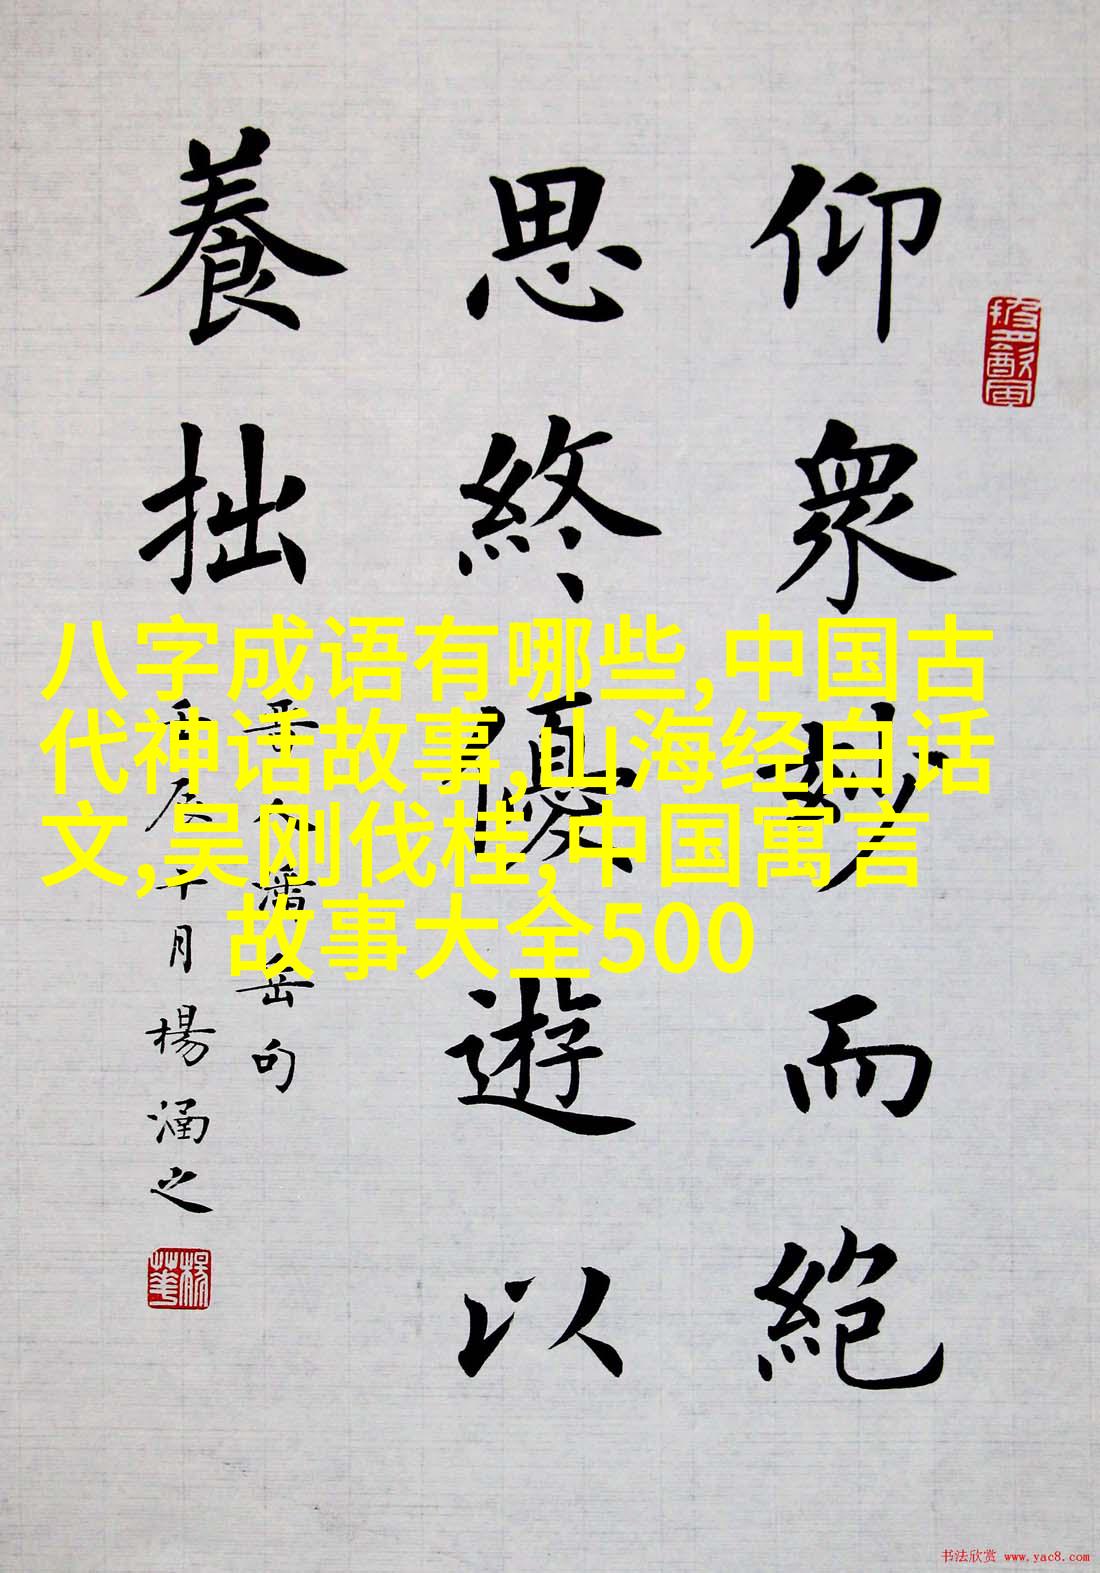 仰衆妙而絶
思終優遊以
養拙
晉人潘岳句
辰年月楊涵之
八字成语有哪些,中国古
代神话故事,山海经白话
文,吴刚伐桂,中国寓言
故事大全500
书法欣赏 www.yac8.com